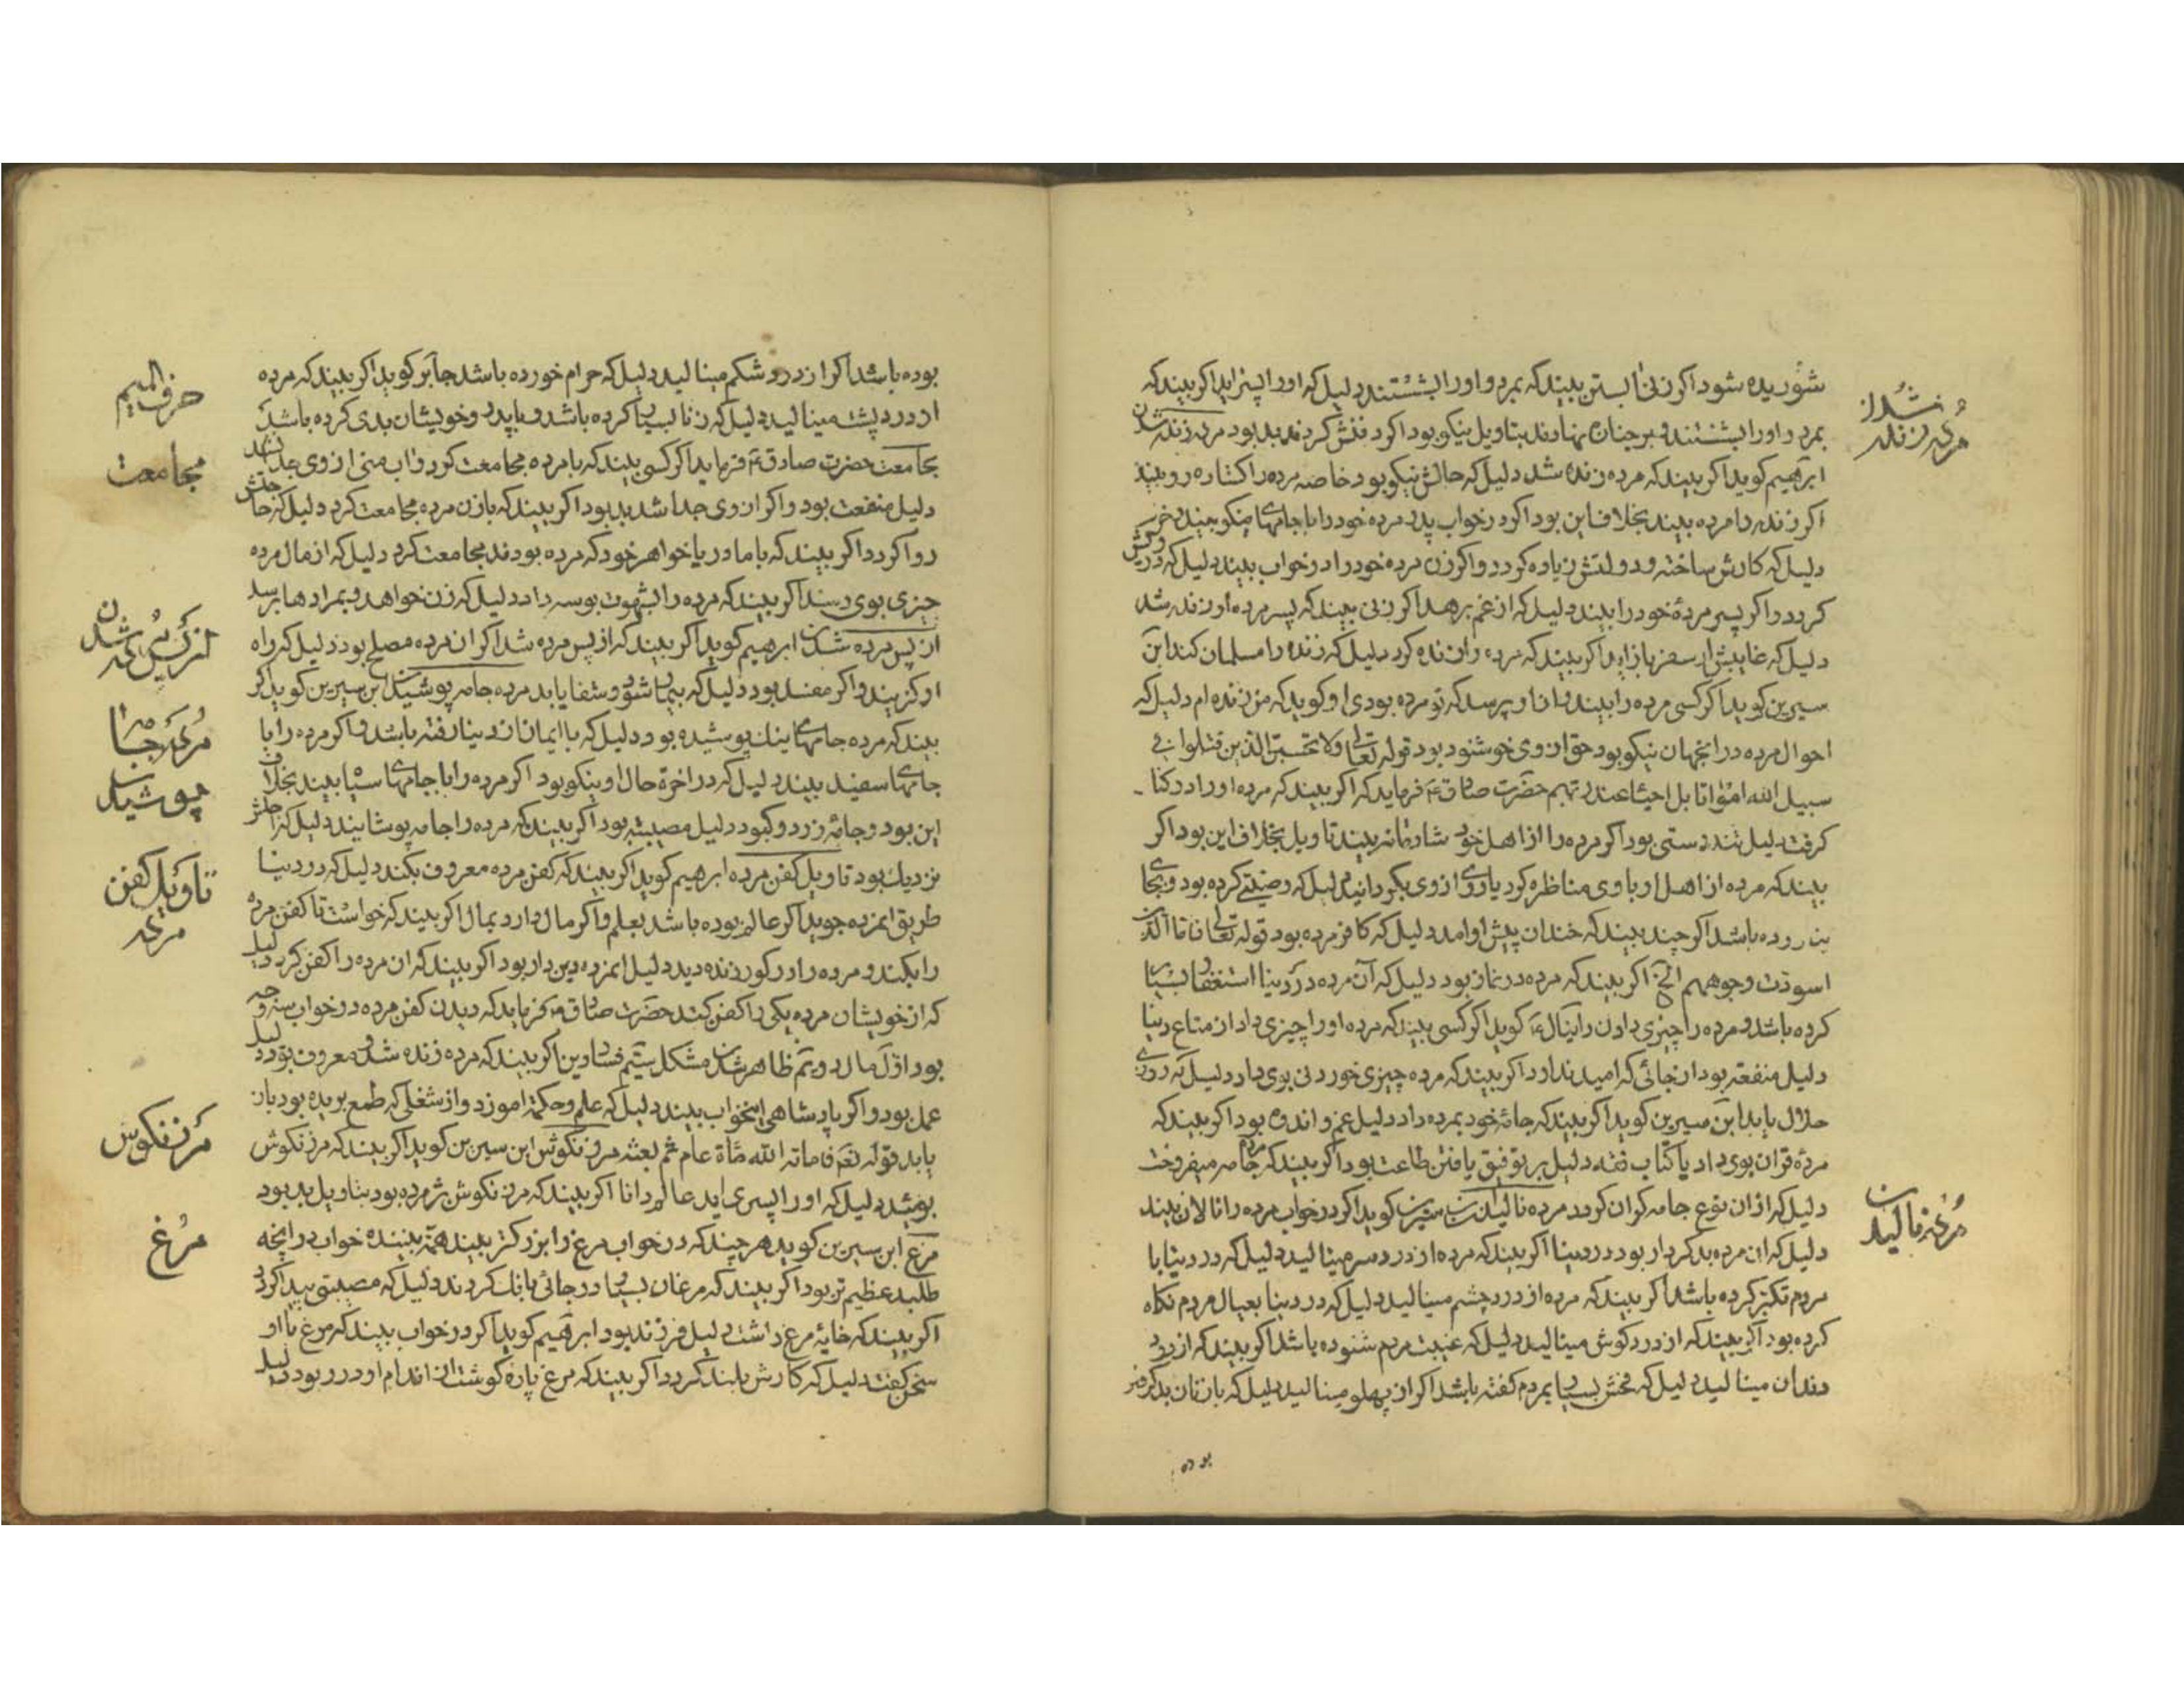 شوریده شود اکر زنی ابستن بیند که بمرد و اورا بشستند دلیل که اورا پسر اید اکر بیند که
بمرد و اورا بشستند و بر جنازه نهادند بتاویل نیکو بود اکر دفنش کردند بد بود مرده زنده شدن
مرده زنده شدن
ابرهیم کوید اکر بیند که مرده زنده شد دلیل که حالش نیکو بود خاصه مرده را کشاده رو بیند
اکر زنده را مرده بیند بخلاف این بود اکر در خواب پدر مرده خود را با جامهای نیکو بیند
دلیل که کارش ساخته و دولتش زیاده کردد و اکر زن مرده خود را در خواب بیند دلیل که
کردد و اکر پسر مردهٔ خود را بیند دلیل که از غم برهد اکر زنی بیند که پسر مرده او زنده شد
دلیل که غایبش از سفر باز اید و اکر بیند که مرده را زنده کرد دلیل که زنده را مسلمان کند ابن
سیرین کوید اکر کسی مرده را بیند و از او پرسد که تو مرده بودی او کوید که من زنده ام دلیل که
احوال مرده در انجهان نیکو بود حق از وی خوشنود بود قوله تعالی ولا تحسبن الذین قتلوا فی
سبیل الله امواتا بل احیاء عند ربهم حضرت صادق ع فرماید که اکر بیند که مرده اورا در کنار
کرفت دلیل تندرستی بود اکر مرده را از اهل خود شادمانه بیند تاویل بخلاف این بود اکر
بیند که مرده از اهل او با وی مناظره کرد یا روی از وی بکردانید دلیل که وصیتی کرده بود و بجای
نیاورده باشد اکر چند بیند که خندان پیش او امد دلیل که کافر مرده بود قوله تعالی فاما الذین
اسودت وجوههم الخ اکر بیند که مرده در نماز بود دلیل که آن مرده در دنیا استغفار بسیار
کرده باشد و مرده را چیزی دادن دانیال ع کوید اکر کسی بیند که مرده اورا چیزی داد از متاع دنیا
دلیل منفعت بود از جائی که امید ندارد اکر بیند که مرده چیزی خوردنی بوی داد دلیل که روزی
حلال یابد ابن سیرین کوید اکر بیند که جامهٔ خود بمرده داد دلیل غم و اندوه بود اکر بیند که
مرده قران بوی داد یا کتاب فقه دلیل بر توفیق یافتن طاعت بود اکر بیند که مرده جامه میفروخت
دلیل که از ان نوع جامه کران کردد مرده نالیدن ابن سیرین کوید اکر در خواب مرده را نالان بیند
مرده نالیدن
دلیل که ان مرده بدکردار بود در دنیا اکر بیند که مرده از درد سر مینالید دلیل که در دنیا با
مردم تکبر کرده باشد اکر بیند که مرده از درد چشم مینالید دلیل که در دنیا بعیال مردم نکاه
کرده بود اکر بیند که از درد کوش مینالید دلیل که غیبت مردم شنوده باشد اکر بیند که از درد
دندان مینالید دلیل که فحش بسیار بمردم کفته باشد اکر از پهلو مینالید دلیل که با زنان بد کرده
بوده
بوده باشد اکر از درد شکم مینالید دلیل که حرام خورده باشد جابر کوید اکر بیند که مرده
حرف المیم
از درد پشت مینالید دلیل که زنا بسیار کرده باشد و با پدر و خویشان بدی کرده باشد
مجامعت
مجامعت حضرت صادق ع فرماید اکر کسی بیند که با مرده مجامعت کرد و اب منی از وی جدا نشد
دلیل منفعت بود و اکر از وی جدا شد بد بود اکر بیند که با زن مرده مجامعت کرد دلیل که حاجتش
روا کردد اکر بیند که با مادر یا خواهر خود که مرده بودند مجامعت کرد دلیل که از مال مرده
چیزی بوی رسد اکر بیند که مرده را بشهوت بوسه داد دلیل که زن خواهد و بمرادها برسد
از پس مرده شدن
از پس مرده شدن ابرهیم کوید اکر بیند که از پس مرده شد اکر ان مرده مصلح بود دلیل که راه
او کزیند و اکر مفسد بود دلیل که بیمار شود و شفا یابد مرده جامه پوشیدن ابن سیرین کوید اکر
مرده جامه پوشیدن
بیند که مرده جامهای نیک پوشیده بود دلیل که با ایمان از دنیا رفته باشد و اکر مرده را با
جامهای سفید بیند دلیل که در اخرة حال او نیکو بود اکر مرده را با جامهای سیاه بیند بخلاف
این بود و جامهٔ زرد و کبود دلیل مصیبت بود اکر بیند که مرده را جامه پوشانیدند دلیل که اجلش
تاویل کفن مرده
نزدیک بود تاویل کفن مرده ابرهیم کوید اکر بیند که کفن مرده معروف بکند دلیل که در دنیا
طریق انمرده جوید اکر عالم بوده باشد بعلم و اکر مال دارد بمال اکر بیند که خواست تا کفن مرده
را بکند و مرده را در کور زنده دید دلیل انمرده دین دار بود اکر بیند که ان مرده را کفن کرد دلیل
که از خویشان مرده یکی را کفن کند حضرت صادق ع فرماید که دیدن کفن مرده در خواب سه وجه
بود اول مال دویم ظاهر شدن مشکل سیم فساد دین اکر بیند که مرده زنده شد و معروف بود دلیل
عمل بود و اکر پادشاهی اینخواب بیند دلیل که علم و حکمة اموزد و از شغلی که طمع بریده بود باز
مرزنکوش
یابد قوله تعم فاماته الله مأة عام ثم بعثه مرزنکوش ابن سیرین کوید اکر بیند که مرزنکوش
بوئید دلیل که اورا پسری اید عالم و دانا اکر بیند که مرزنکوش پژمرده بود بتاویل بد بود
مرغ
مرغ ابن سیرین کوید هر چند که در خواب مرغ را بزرکتر بیند همّة بیننده خواب در انچه
طلبد عظیم تر بود اکر بیند که مرغان بسیار در جائی بانک کردند دلیل که مصیبتی پیدا کردد
اکر بیند که خایهٔ مرغ داشت دلیل فرزند بود ابرهیم کوید اکر در خواب بیند که مرغ با او
سخن کفت دلیل که کارش بلند کردد اکر بیند که مرغ پاره کوشت از اندام او در ربود دلیل